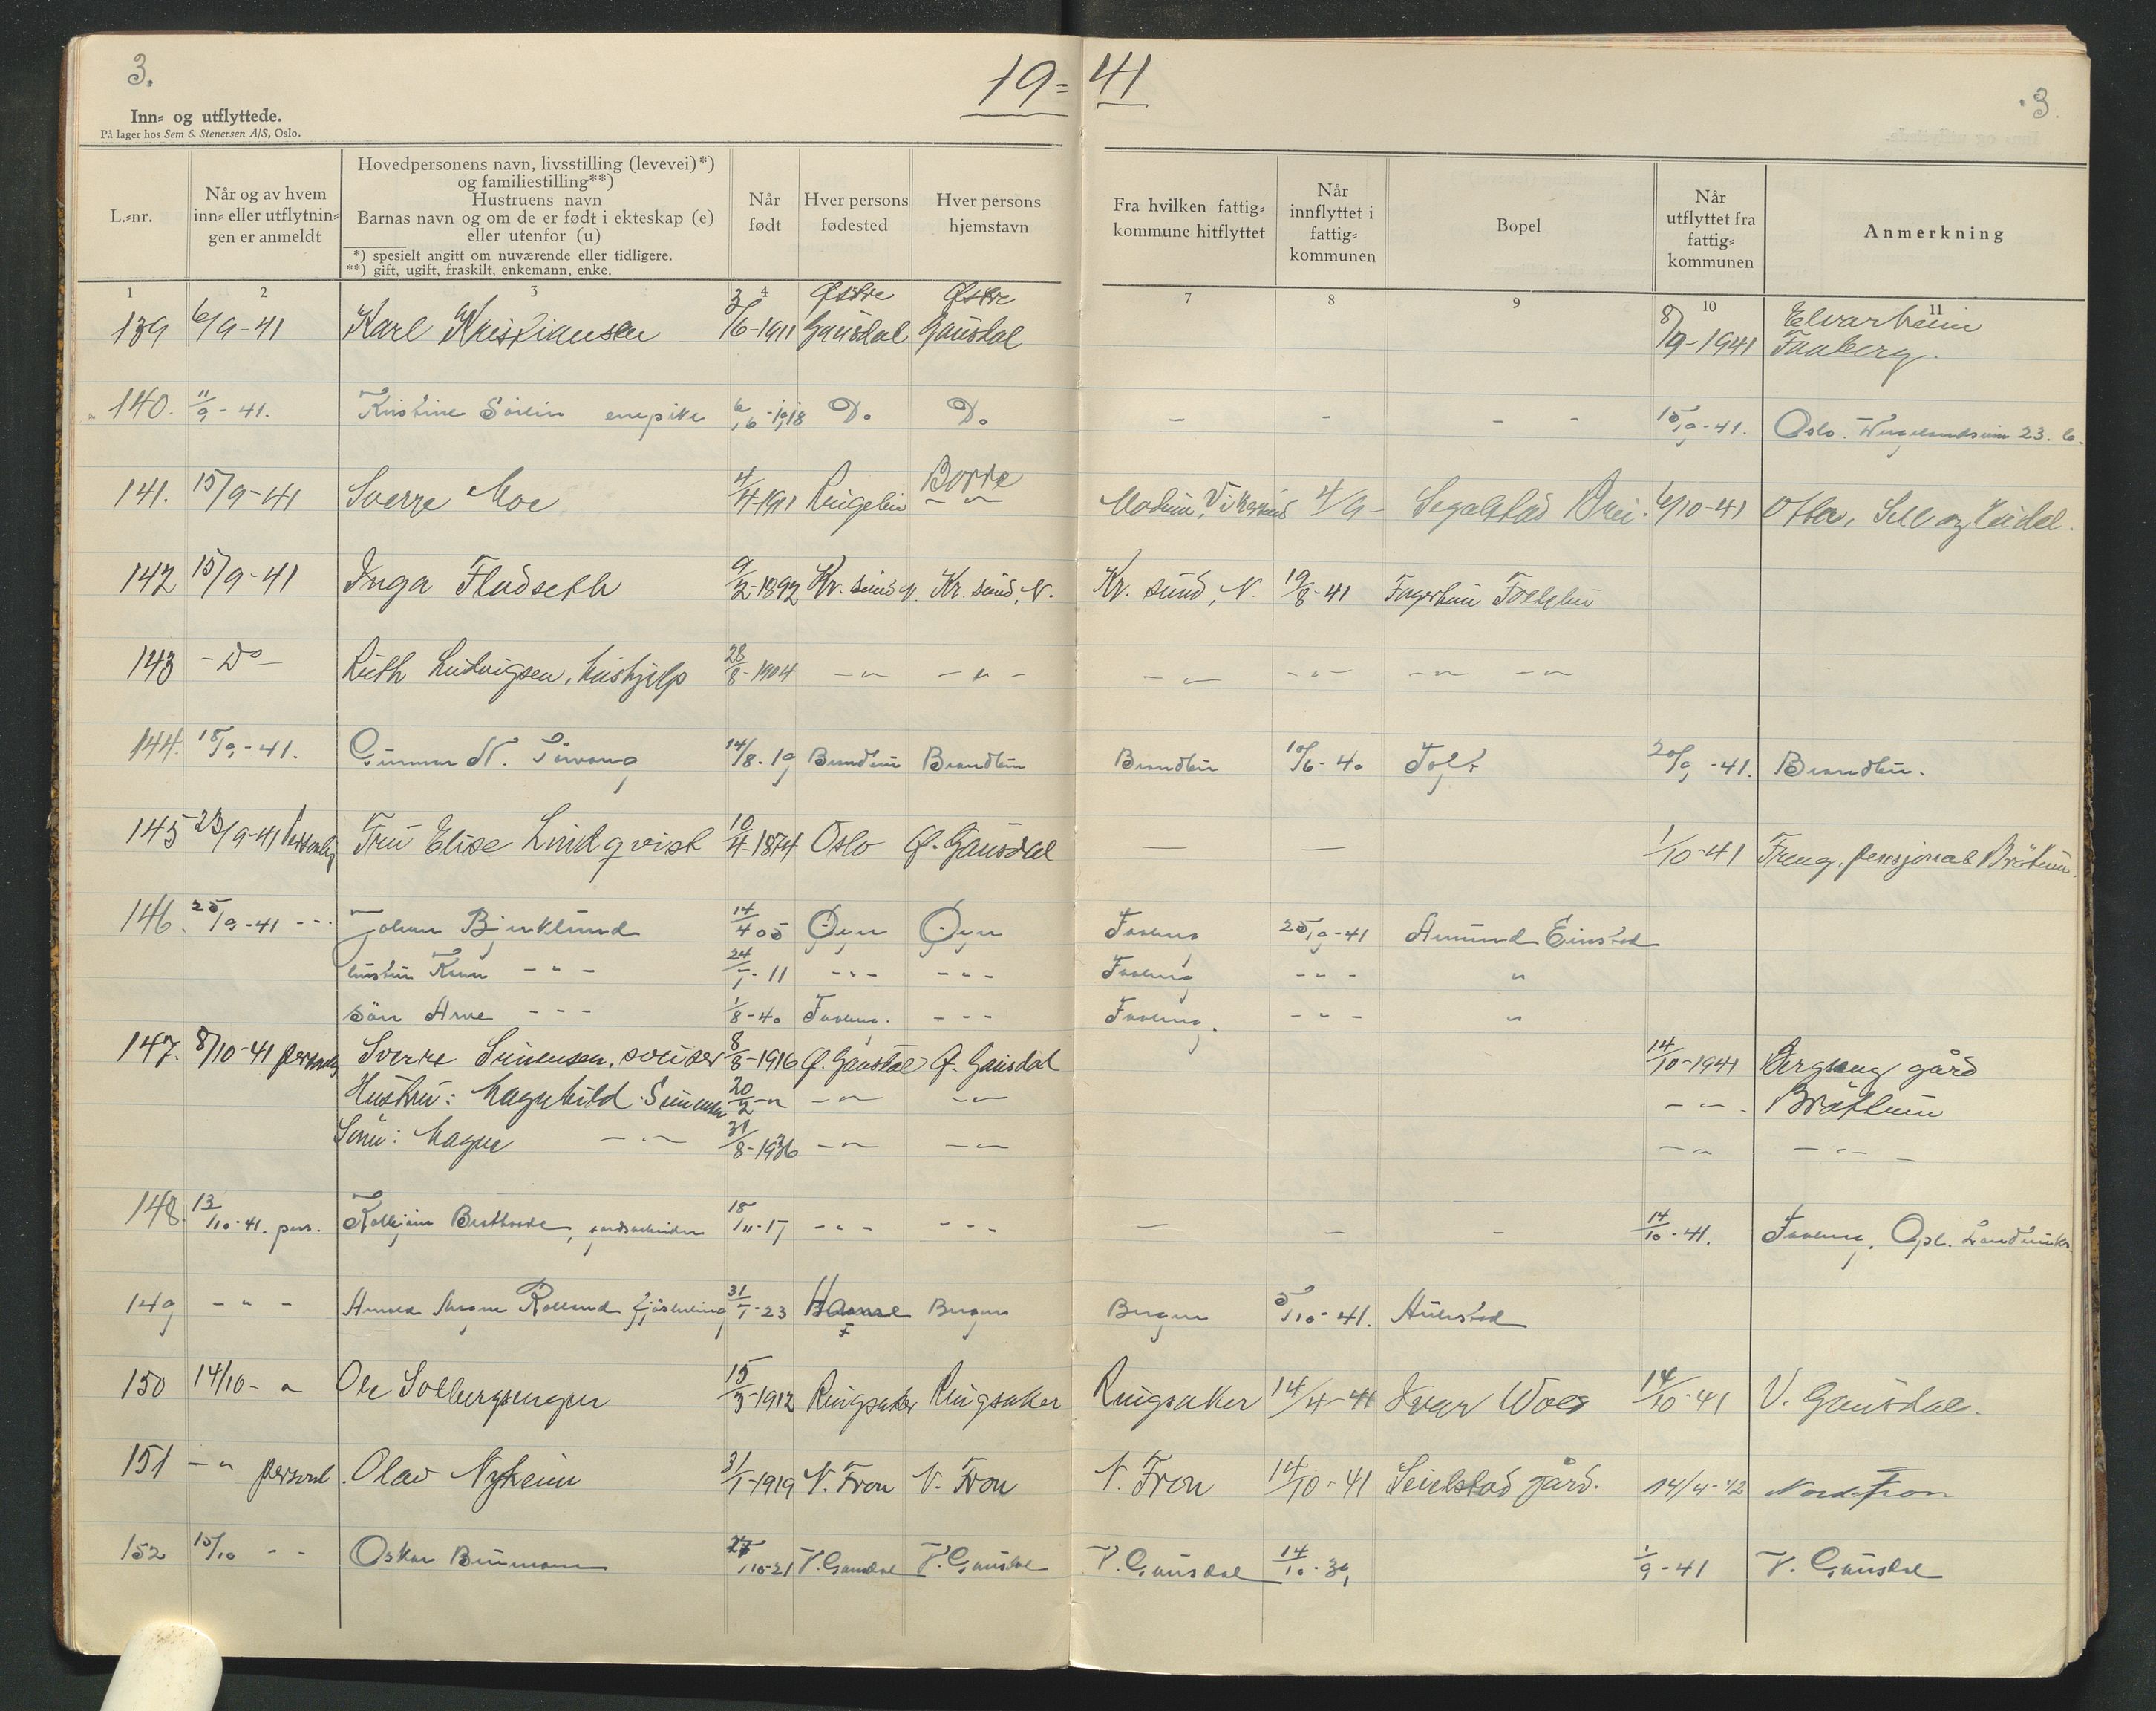 3.
19= 41
3.
Inn= og utflyttede.
På lager hos Sem & Stenersen A/S, Oslo.
L.=nr.
Når og av hvem
inn= eller utflytnin=
gen er anmeldt
Hovedpersonens navn, livsstilling (levevei)*)
og familiestilling**)
Hustruens navn
Barnas navn og om de er født i ekteskap (e)
eller utenfor (u)
*) spesielt angitt om nuværende eller tidligere.
**) gift, ugift, fraskilt, enkemann, enke.
Når
født
Hver persons
fødested
Hver persons
hjemstavn
Fra hvilken fattig=
kommune hitflyttet
Når
innflyttet i
fattig=
kommunen
Bopel
Når
utflyttet fra
fattig=
kommunen
Anmerkning
1 2 3 4 7 8 9 10 11
Østre Østre Elvarheim
139 6/9-41 Karl Kristiansen 3/6-1911 Gausdal Gausdal 8/9-1941 Faaberg.
140. 11/9-41. Kristine enepike 6/6-1918 Do Do - - - - 15/9-41. Oslo. 23. 6.
141. 15/9-41 Sverre Moe 4/4-1911 Borre Modum, Vikersund 4/9- Segalstad Bru. 6/10-41 Otta, Sel og Heidal.
142 15/9-41 Inga Fladseth 9/2-1892 Kr. sund N. Kr. sund, N. Kr. sund, N. 19/8-41 Fagerheim
143 - Do - Ruth Ludvigsen, hushjelp 28/8-1904 - " - - " - - " - - " - - " - - " -
144. 18/9-41. Gunnar N. 14/8-19 Brandbu Brandbu 10/6-40 20/9-41. Brandbu.
145 23/9-41 Personlig Fru Elise Lindqvist 10/4-1874 Oslo Ø. Gausdal — — 1/10-41 Freng, pensjonat Brøttum.
146. 25/9-41 - " - Johan Bjørklund 14/4 05 Øyer Øyer Faaberg 25/9-41 Amund Einstad
hustru Karen - " - 24/1-11 - " - - " - Faaberg - " - "
sön Arne - " - 1/8-40 Faaberg. - " - Faaberg. - " - "
147. 8/10-41 personlig Sverre Simensen, sveiser 8/8-1916 Ø. Gausdal Ø. Gausdal 14/10-1941 Bergseng gård
Hustru: Magnhild Simensen 20/2-" - " - - " - - " - Brøttum
Sønn: Magne - " - 31/8-1936 - " - - " - - " - - " -
148. 13/10-41. pers. gardsarbeider 18/11-17 - " - - " - — — - 14/10-41. Faaberg, Opl.
149 - " - Arnold Magne 31/1-23 Bergen Bergen 5/10-41.
150 14/10- " Ole Solbergsengen 15/3-1912 Ringsaker Ringsaker Ringsaker 14/4-41 Ivar Wold 14/10-41 V. Gausdal.
151 - " personl. Olav Nyheim 31/1-1919 N. Fron N. Fron N. Fron 14/10-41 Seielstad gård. 14/4-42 Nord-Fron
152 15/10 - - Oskar 27/10-21 V. Gausdal V. Gausdal V. Gausdal 14/10-39 1/9-41 V. Gausdal